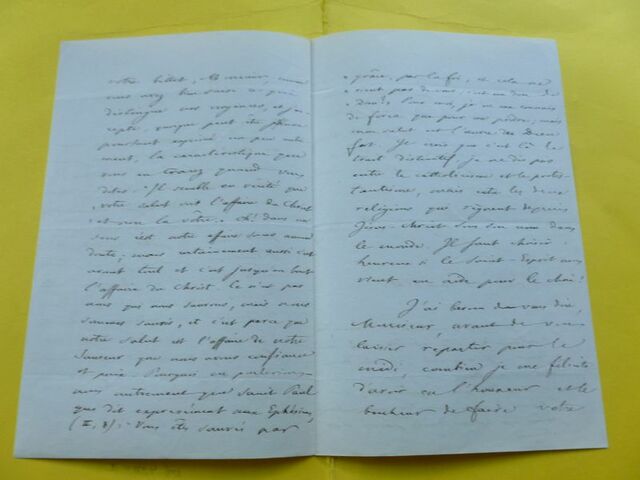 votre billet, Monsieur, vous
nous avez bien saisi ce qui
distingue nos croyances, et j'ac-
cepte, quoique peut-être j'eusse
pourtant exprimé un peu autre-
ment, la caractéristique que
vous en tracez quand vous
dites: "Il semble en vérité que
" votre salut soit l'affaire du Christ
" et non la vôtre". Oh! dans un
sens c'est notre affaire sans aucun
doute; mais certainement aussi c'est
avant tout et c'est jusqu'au bout
l'affaire du Christ. Ce n'est pas
nous qui nous sauvons, mais nous
sommes sauvés, et c'est parce que
notre salut est l'affaire de notre
Sauveur que nous avons confiance
et paix. Pourquoi en parlerions-
nous autrement que Saint Paul
qui dit expressément aux Ephésiens,
(II, 8): "Vous êtes sauvés par
" grâce, par la foi, et cela ne
" vient pas de vous, c'est un don de
" Dieu". Pour moi, je ne me connais
de force que pour me perdre, mais
mon salut est l'œuvre du Dieu
fort. Je crois que c'est là le
trait distinctif, je ne dis pas
entre le catholicisme et le protes-
tantisme, mais entre les deux
religions qui règnent depuis
Jésus-Christ sous son nom dans
le monde. Il faut choisir:
heureux si le Saint-Esprit nous
vient en aide pour le choix!
J'ai besoin de vous dire,
Monsieur, avant de vous
laisser repartir pour le
midi, combien je me félicite
d'avoir eu l'honneur et le
bonheur de faire votre